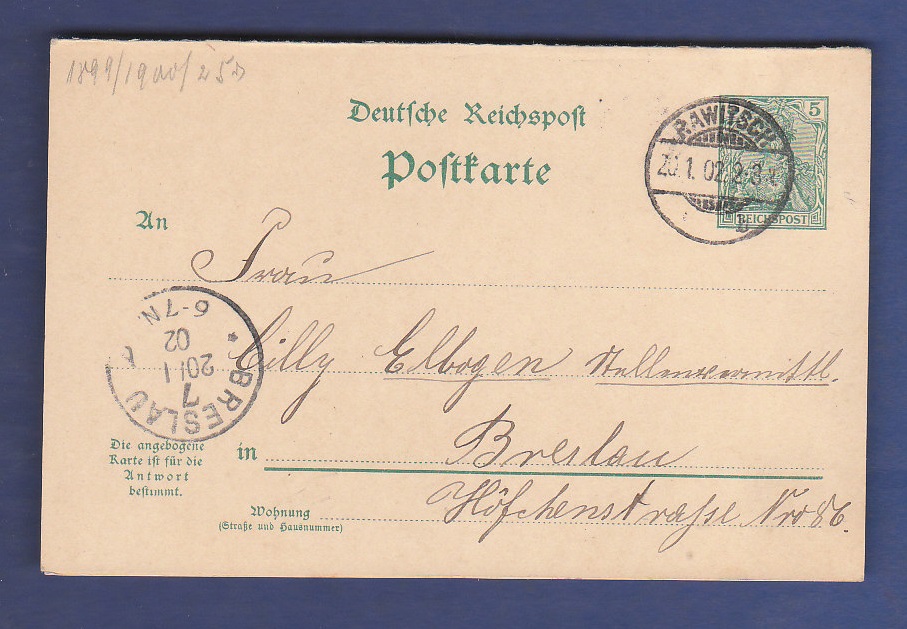 1899/1900/25
Deutsche Reichspost
Postkarte
5
REICHSPOST
RAWITSCH
20.1.02.2-3N.
b
An
Frau
Cilly Elbogen Stellenvermittl.
in Breslau
Höfchenstrasse Nro 86.
Die angebogene
Karte ist für die
Antwort
bestimmt.
Wohnung
(Straße und Hausnummer)
* BRESLAU
7
20/1
02
6-7N.